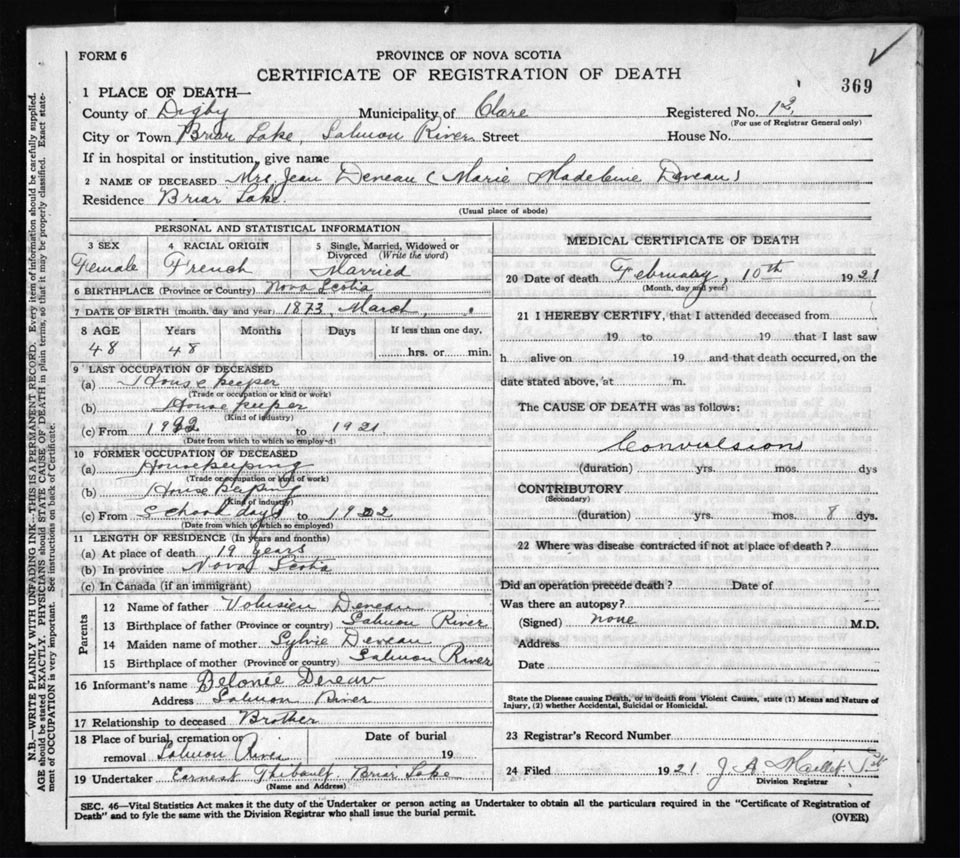 FORM 6
PROVINCE OF NOVA SCOTIA
CERTIFICATE OF REGISTRATION OF DEATH
369
1 PLACE OF DEATH—
County of Digby Municipality of Clare Registered No. 12
(For use of Registrar General only)
City or Town Briar Lake, Salmon River Street House No.
If in hospital or institution, give name
2 NAME OF DECEASED Mrs. Jean Deveau (Marie Madeleine Deveau)
Residence Briar Lake.
(Usual place of abode)
PERSONAL AND STATISTICAL INFORMATION
3 SEX 4 RACIAL ORIGIN 5 Single, Married, Widowed or Divorced (Write the word)
Female French Married
6 BIRTHPLACE (Province or Country) Nova Scotia
7 DATE OF BIRTH (month, day and year) 1873, March,
8 AGE Years Months Days If less than one day,
48 48 hrs. or min.
9 LAST OCCUPATION OF DECEASED
(a) House keeper
(Trade or occupation or kind or work)
(b) House keeper
(Kind of industry)
(c) From to 1921
(Date from which to which so employ-d)
10 FORMER OCCUPATION OF DECEASED
(a) Housekeeping
(Trade or occupation or kind of work)
(b) House keeping
(Kind of industry)
(c) From School days to 1902
(Date from which to which so employed)
11 LENGTH OF RESIDENCE (In years and months)
(a) At place of death 19 years
(b) In province Nova Scotia
(c) In Canada (if an immigrant)
Parents
12 Name of father Volusien Deveau
13 Birthplace of father (Province or country) Salmon River
14 Maiden name of mother Sylvie Deveau
15 Birthplace of mother (Province or country) Salmon River
16 Informant's name Delonie Deveau
Address Salmon River
17 Relationship to deceased Brother
18 Place of burial, cremation or removal Salmon River Date of burial 19
19 Undertaker Earnest Thibault Briar Lake
(Name and Address)
MEDICAL CERTIFICATE OF DEATH
20 Date of death February, 10th 1921
(Month, day and year)
21 I HEREBY CERTIFY, that I attended deceased from
19 to 19 that I last saw
h alive on 19 and that death occurred, on the
date stated above, at m.
The CAUSE OF DEATH was as follows:
Convulsions
(duration) yrs. mos. dys
CONTRIBUTORY
(Secondary)
(duration) yrs. mos. 8 dys.
22 Where was disease contracted if not at place of death?
Did an operation precede death? Date of
Was there an autopsy?
(Signed) none M.D.
Address
Date
State the Disease causing Death, or in death from Violent Causes, state (1) Means and Nature of
Injury, (2) whether Accidental, Suicidal or Homicidal.
23 Registrar's Record Number
24 Filed 1921 J A Maillet
Division Registrar
SEC. 46—Vital Statistics Act makes it the duty of the Undertaker or person acting as Undertaker to obtain all the particulars required in the "Certificate of Registration of
Death" and to fyle the same with the Division Registrar who shall issue the burial permit.
(OVER)
N.B.—WRITE PLAINLY WITH UNFADING INK—THIS IS A PERMANENT RECORD. Every item of information should be carefully supplied.
AGE should be stated EXACTLY. PHYSICIANS should STATE CAUSE OF DEATH in plain terms, so that it may be properly classified. Exact state-
ment of OCCUPATION is very important. See instructions on back of Certificate.